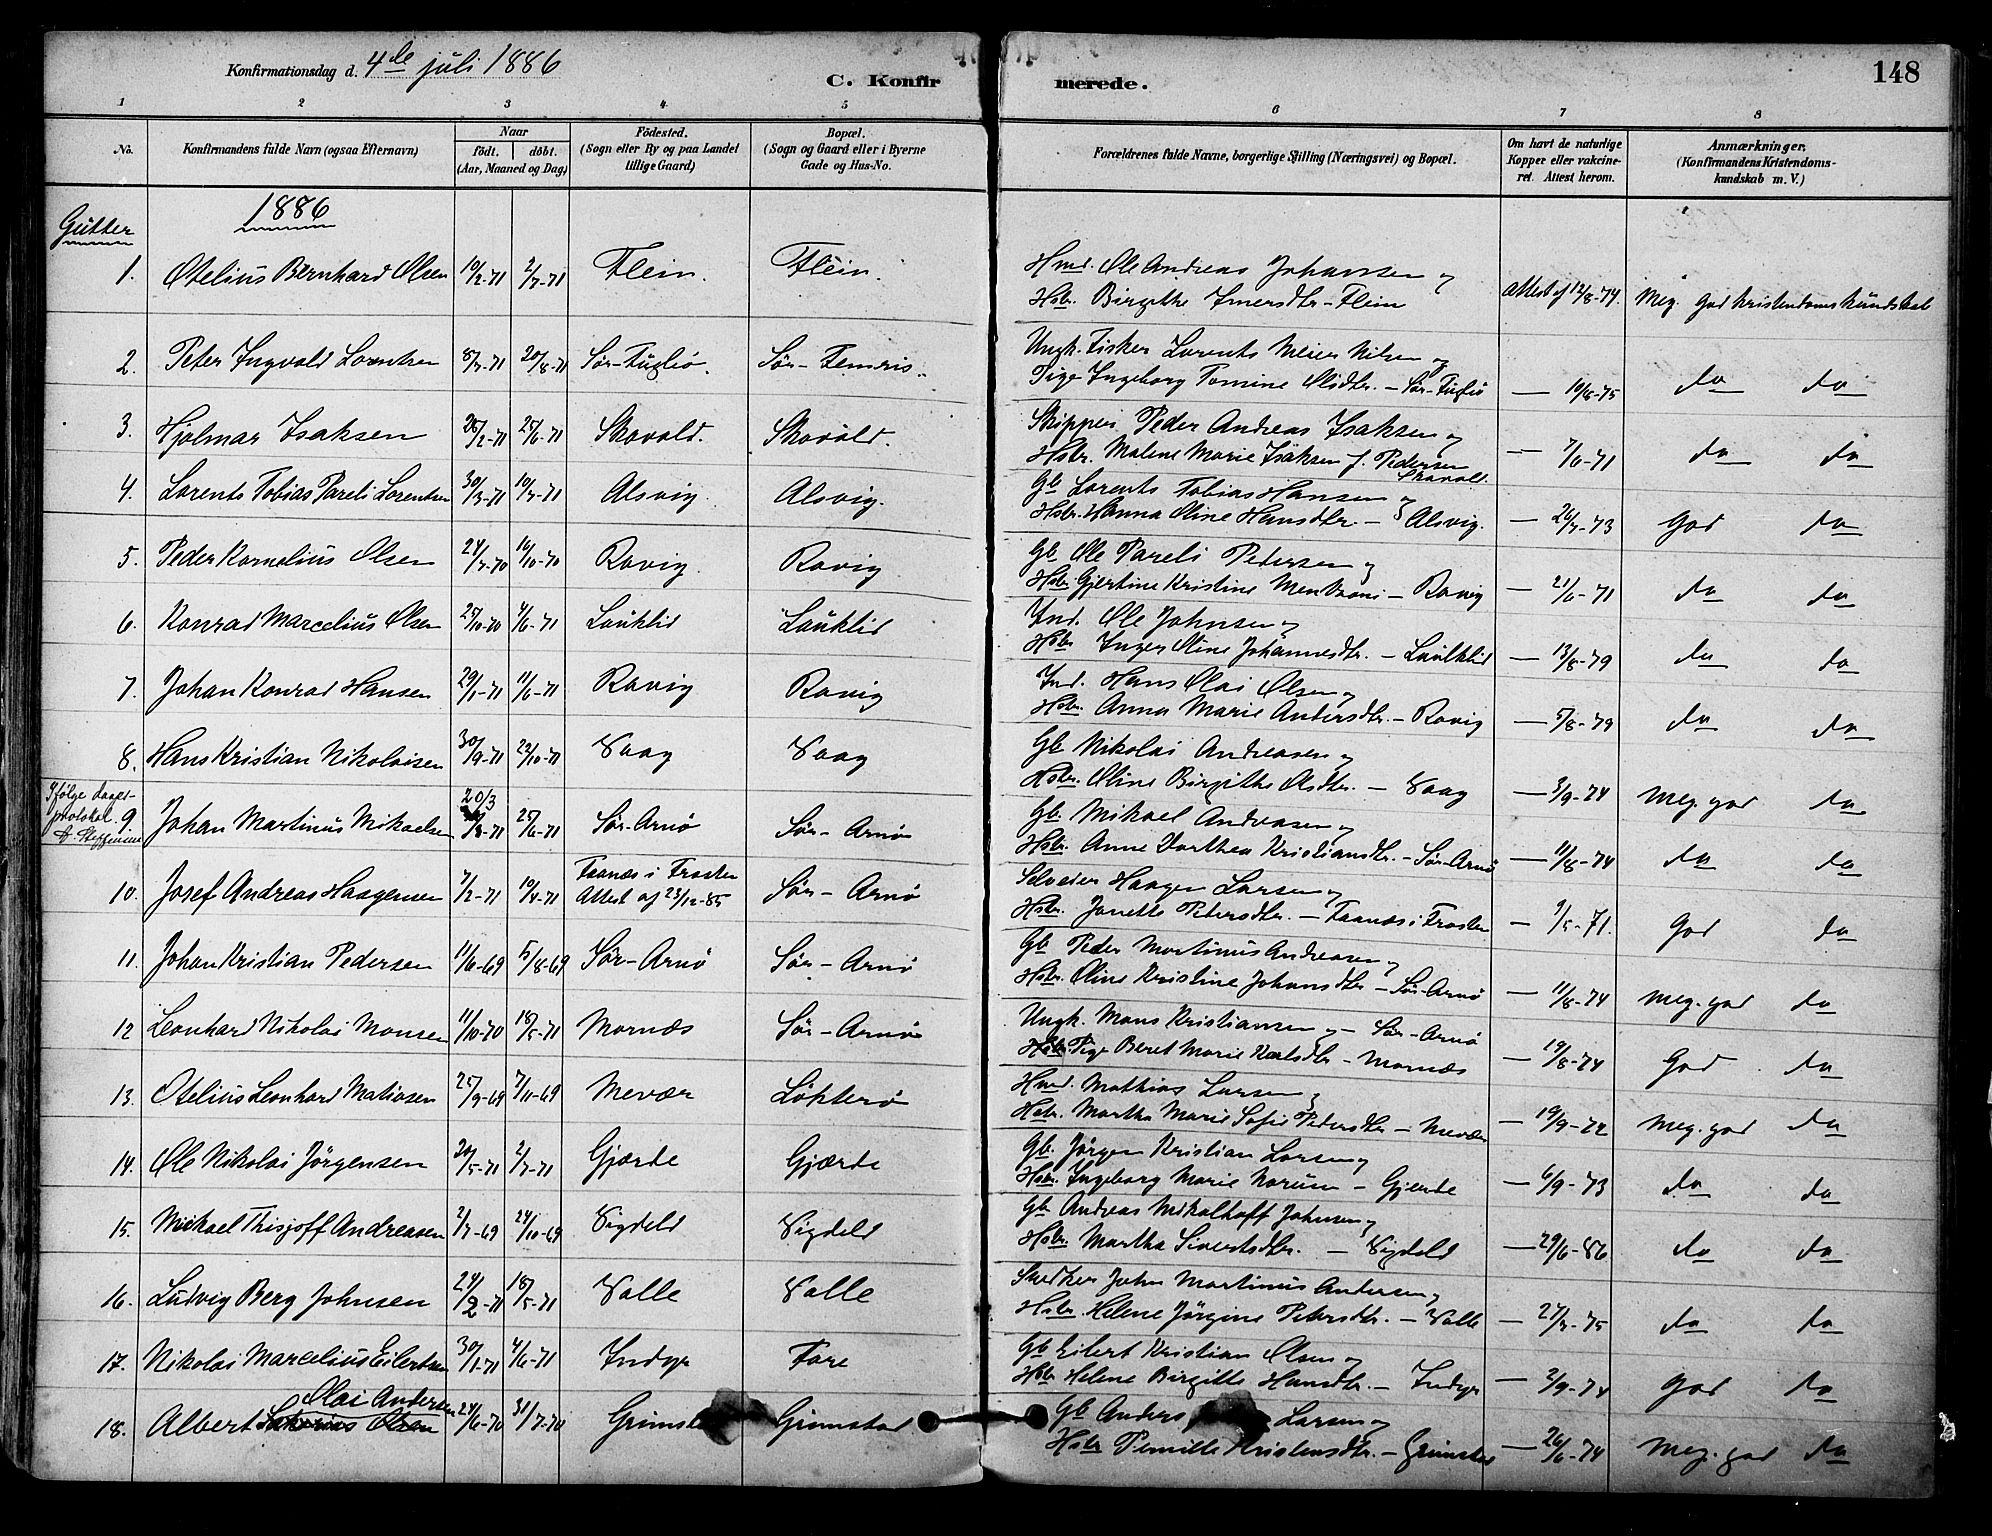 Konfirmationsdag d. 4de juli 1886
C. Konfirmerede.
148
1 2 3 4 5 6 7 8
No.
Konfirmandens fulde Navn (ogsaa Efternavn)
Naar
født. døbt.
(Aar, Maaned og Dag)
Fødested.
(Sogn eller By og paa Landet
tillige Gaard)
Bopæl.
(Sogn og Gaard eller i Byerne
Gade og Hus-No.
Forældrenes fulde Navne, borgerlige Stilling (Næringsvei) og Bopæl.
Om havt de naturlige
Kopper eller vakcine-
ret. Attest herom.
Anmærkninger.
(Konfirmandens Kristendoms-
kundskab m. V.)
1886
Gutter
1. Otelius Bernhard Olsen 10/2-71 2/7-71 Flein. Flein. Hmd. Ole Andreas Johansen og
Hstr. Birgithe Imersdtr-Flein Attest af 12/8-74. Meg. god Kristendomskundskab
2. Peter Ingvald Lorentzen 8/7-71 20/8-71 Sør-Fuglø. Sør-Femris. Ungk. Fisker Lorents Meier Nilsen og
Pige Ingeborg Tomine Olsdtr. - Sør-Fuglø — 10/8-75 do do
3. Hjalmar Isaksen 26/2-71 25/6-71 Skavold. Skavold. Skipper Peder Andreas Isaksen og
Hstr. Malene Marie Isaksen f. Pedersen
Skavold. — 7/6-71 do do
4. Lorents Tobias Pareli Lorentzen 30/3-71 10/7-71 Alsvig. Alsvig. Gb Lorents Tobias Hansen og
Hstr. Hanna Oline Hansdtr. - Alsvig. — 26/7-73 God do
5. Peder Kornelius Olsen 24/7-70 16/10-70 Ravig. Ravig Gb Ole Pareli Petersen og
Hstr. Gjertine Kristine Mentzoni - Ravig — 21/6-71 do do
6. Konrad Marcelius Olsen 25/10-70 4/6-71 Lauklid Lauklid Ind. Ole Johnsen og
Hstr Inger Oline Johannesdtr. - Lauklid — 13/8-79 do do
7. Johan Konrad Hansen 29/1-71 11/6-71 Ravig Ravig Ind. Hans Olai Olsen og
Hstr. Anna Marie Andersdtr. - Ravig — 5/8-79 do do
8. Hans Kristian Nikolaisen 30/9-71 22/10-71 Vaag Vaag Gb Nikolai Andreasen og
Hstr. Oline Birgithe Olsdtr. - Vaag — 3/9-74 Meg. god do
Ifølge daabs-
protokol
9 Johan Martinus Mikaelsen 20/3 /3-71 25/6-71 Sør-Arnø Sør-Arnø Gb. Mikael Andreasen og
Hstr. Anne Dorthea Kristiansdtr. - Sør-Arnø — 11/8-74 do do
10. Josef Andreas Haagensen 7/2-71 10/4-71 Faanæs i Frosten
Attest af 23/12-85 Sør-Arnø Selveier Haagen Larsen og
Hstr. Janette Petersdtr. - Faanæs i Frosten — 9/5-71. God do
11. Johan Kristian Pedersen 11/6-69 5/8-69 Sør-Arnø Sør-Arnø Gb Peder Martinus Andreasen og
Hstr. Oline Kristine Johansdtr - Sør-Arnø — 11/8-74 Meg. god do
12 Leonhard Nikolai Monsen 11/10-70 18/5-71 Mornæs Sør-Arnø Ungk. Mons Kristiansen og - Sør-Arnø
Pige Beret Marie Karlsdtr - Mornæs — 19/8-74 God do
13. Otelius Leonhard Matiasen 25/9-69 7/11-69 Mevær Løkterø Hmd. Mathias Larsen og
Hstr. Martha Marie Sofie Petersdtr - Mevær — 19/9-72 Meg. god do
14. Ole Nikolai Jørgensen 20/5-71 2/7-71 Gjærde Gjærde Gb. Jørgen Kristian Larsen og
Hstr. Ingeborg Marie Norum - Gjerde — 6/9-73 do do
15. Mikael Thisjoff Andreasen 2/7-69 24/10-69 Sigdeld Sigdeld Gb Andreas Mikalhoff Johnsen og
Hstr. Martha Sivertsdtr. - Sigdeld — 29/6-86 do do
16. Ludvig Berg Johnsen 24/2-71 18/5-71 Valle Valle Snedker John Martinus Andersen og
Hstr. Helene Jørgine Petersdtr. - Valle — 27/7-75 do do
17. Nikolai Marcelius Eilertsen 30/1-71 4/6-71 Indyr Fore Gb Eilert Kristian Olsen og
Hstr Helene Birgitte Hansdtr. - Indyr — 2/9-74 God do
Olai Andersen
18. Albert Olsen 24/6-70 31/7-70 Grimstad Grimstad Gb Anders Larsen og
Hstr Pernille Kristensdtr. - Grimstad — 26/6-74 Meg. god do